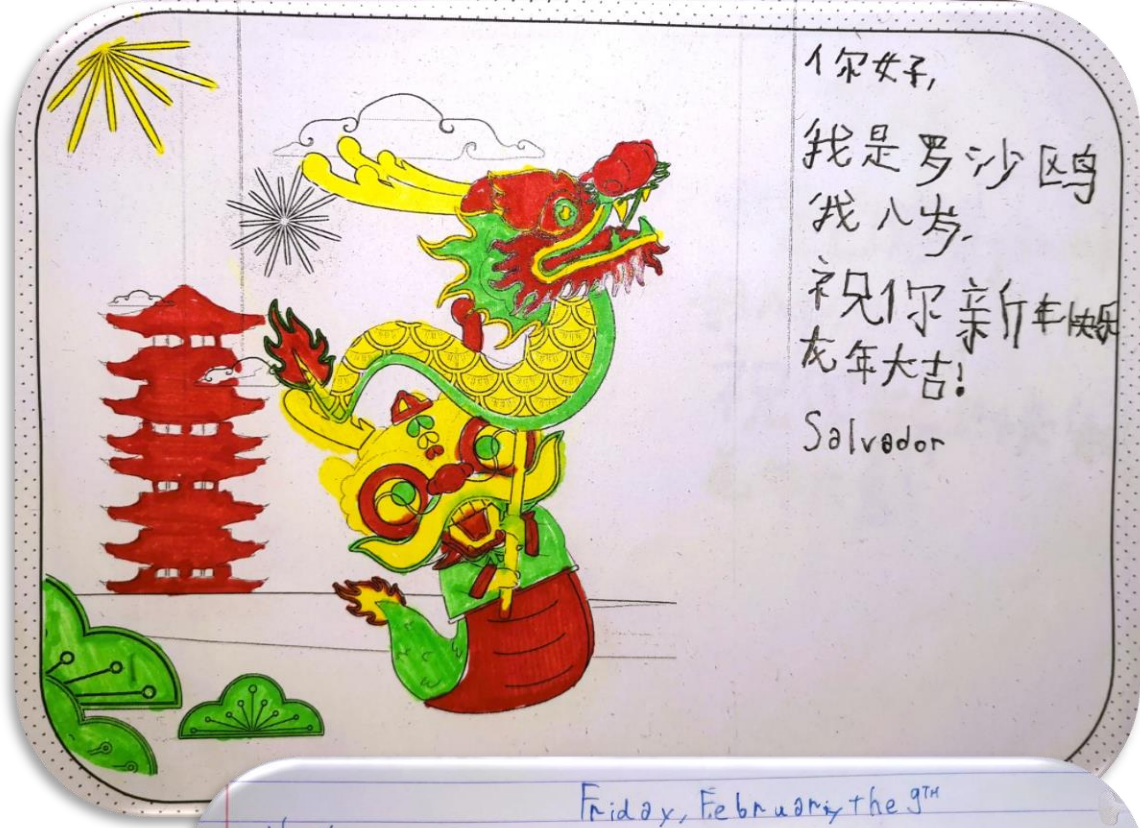 你好,
我是罗沙鸥
我八岁.
祝你新年快乐
龙年大吉!
Salvador
Friday, February the 9TH